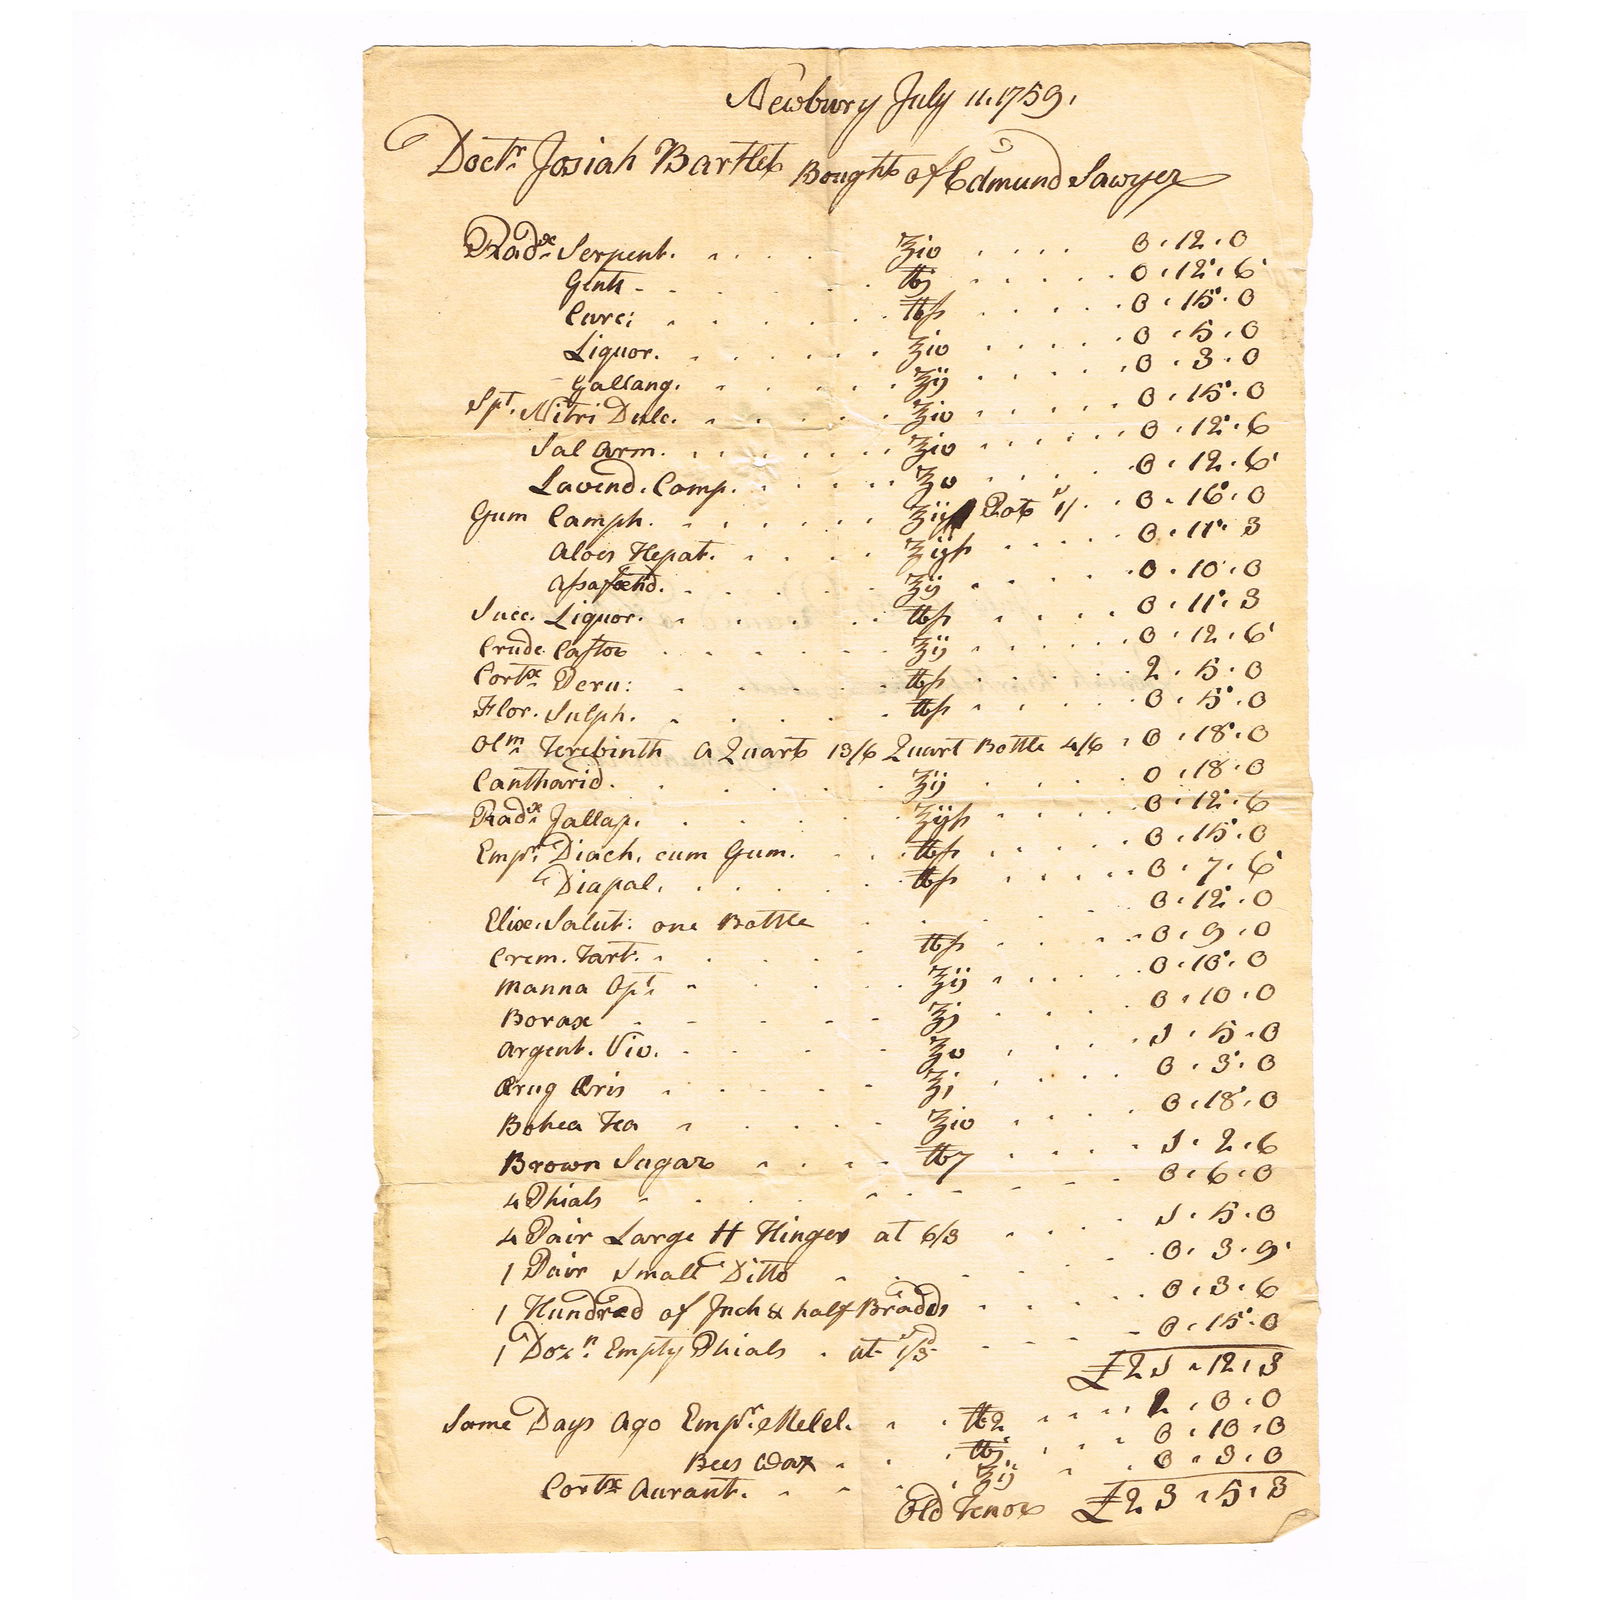 Newbury July 11. 1759.
Doctr. Josiah Bartlet Bought of Edmund Sawyer
Radx. Serpent. ℥iv 0.12.0
Gent. ℔j 0.12.6
Curc: ℔ſs 0.15.0
Liquor. ℥iv 0.5.0
Gallang. ℥ij 0.3.0
Spt. Nitri Dulc. ℥iv 0.15.0
Sal Arm. ℥iv 0.12.6
Lavend. Comp. ℥v 0.12.6
Gum Camph. ℥iij Pot 1/ 0.16.0
Aloes Hepat. ℥ijſs 0.11.3
Assafoetid. ℥ij 0.10.0
Succ. Liquor. ℔ſs 0.11.3
Crude. Castor ℥ij 0.12.6
Cortx. Peru: ℔ſs 2.5.0
Flor. Sulph. ℔ſs 0.5.0
Olm. Terebinth a Quart 13/6 Quart Bottle 4/6 0.18.0
Cantharid. ℥ij 0.18.0
Radx. Jallap. ℥ijſs 0.12.6
Empr. Diach. cum Gum. ℔ſs 0.15.0
Diapal. ℔ſs 0.7.6
Elix. Salut: one Bottle 0.12.0
Crem. Tart. ℔ſs 0.9.0
Manna Opt. ℥ij 0.10.0
Borax ℥j 0.10.0
Argent. Viv. ℥v 1.5.0
Ærug Æris ℥j 0.3.0
Bohea Tea ℥iv 0.18.0
Brown Sugar ℔7 1.2.6
4 Phials 0.6.0
4 Pair Large H Hinges at 6/3 1.5.0
1 Pair Small Ditto 0.3.9
1 Hundred of Inch & half Bradds 0.3.6
1 Dozn. Empty Phials at 1/3 0.15.0
£21.12.3
Some Days ago Empr. Melel. ℔2 1.0.0
Bees Wax ℔j. 0.10.0
Cortx Aurant. ℥ij 0.3.0
Old Tenor £23.5.3